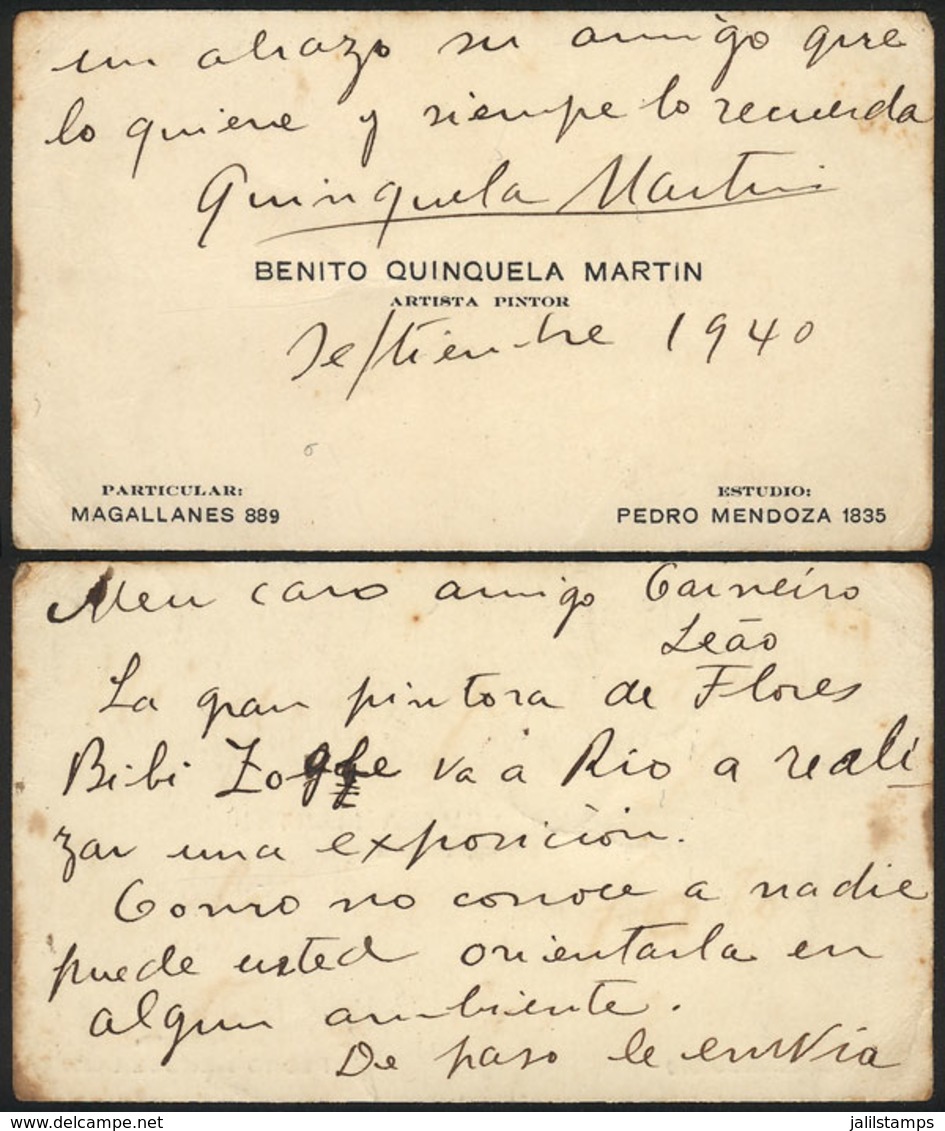 un abrazo su amigo que
lo quiere y siempe lo recuerda
Quinquela Martin
BENITO QUINQUELA MARTIN
ARTISTA PINTOR
Septiembre 1940
PARTICULAR:
MAGALLANES 889
ESTUDIO:
PEDRO MENDOZA 1835
Meu caro amigo Carneiro
Leão
La gran pintora de Flores
Bibi Zogbe va a Rio a reali
zar una exposición.
Como no conoce a nadie
puede usted orientarla en
algun ambiente.
De paso le envia
delcampe.net
jalilstamps